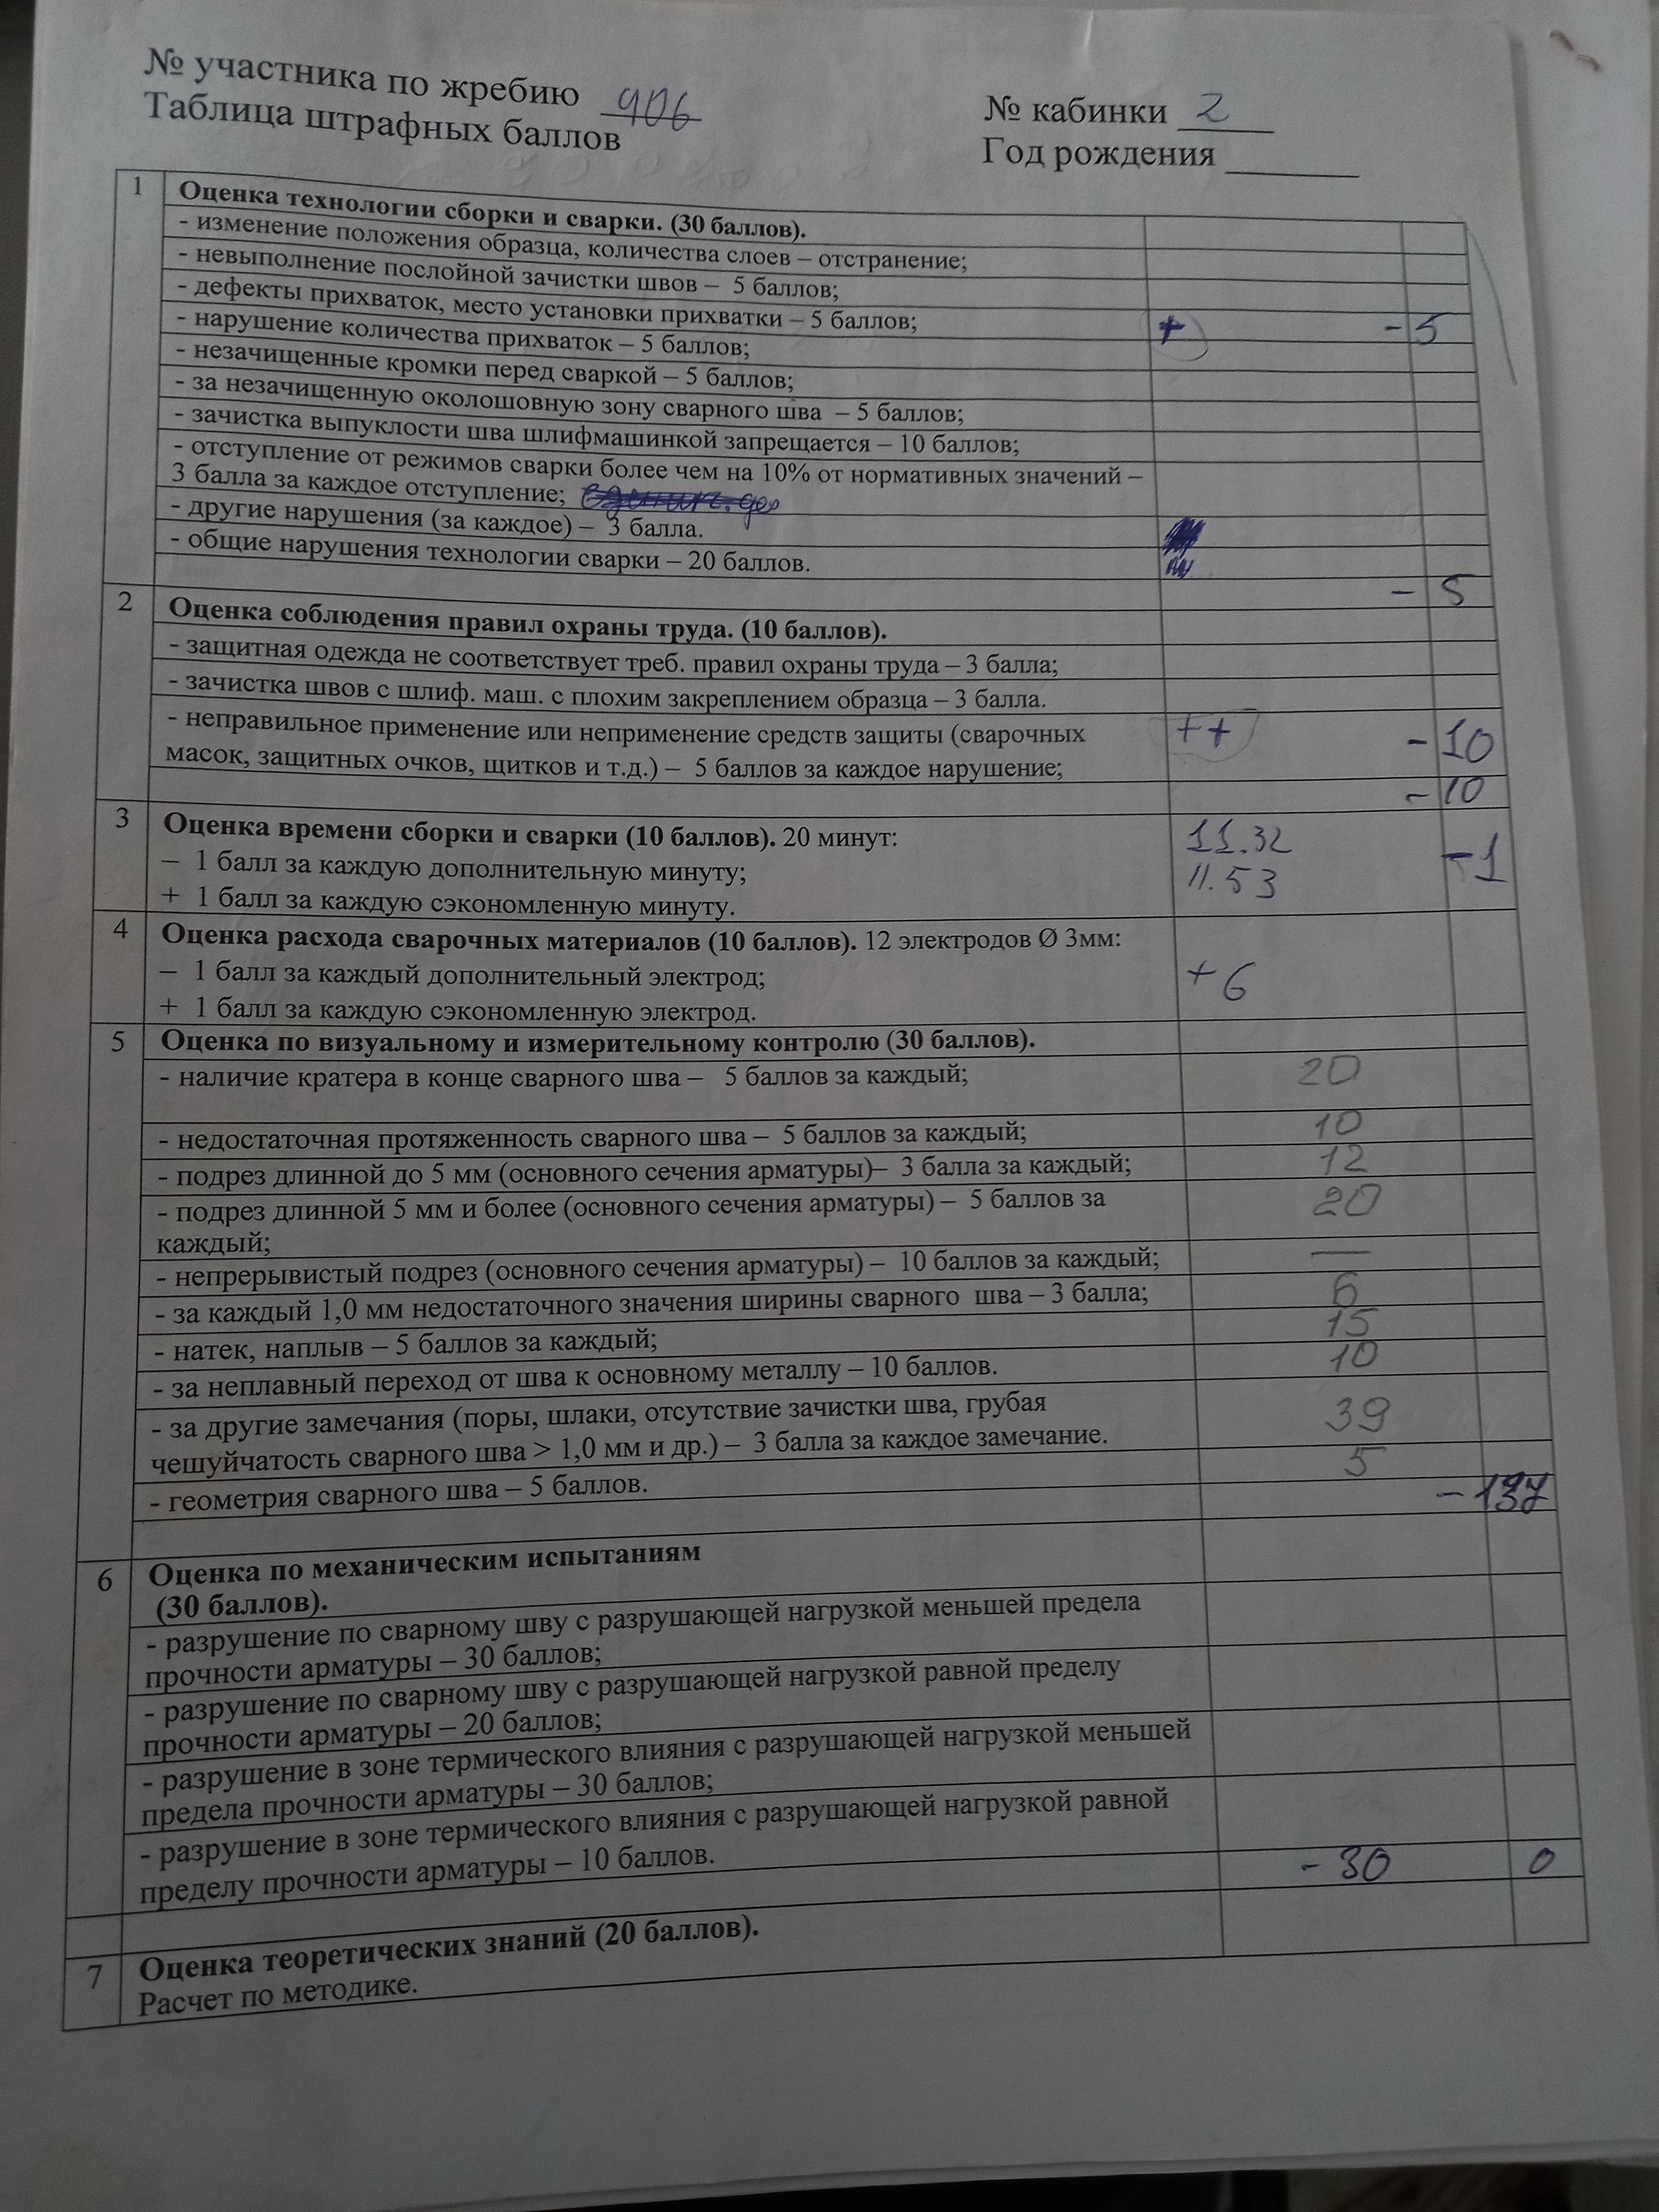 № участника по жребию 906
№ кабинки 2
Таблица штрафных баллов
Год рождения ______
1 Оценка технологии сборки и сварки. (30 баллов).
- изменение положения образца, количества слоев – отстранение;
- невыполнение послойной зачистки швов – 5 баллов;
- дефекты прихваток, место установки прихватки – 5 баллов; + -5
- нарушение количества прихваток – 5 баллов;
- незачищенные кромки перед сваркой – 5 баллов;
- за незачищенную околошовную зону сварного шва – 5 баллов;
- зачистка выпуклости шва шлифмашинкой запрещается – 10 баллов;
- отступление от режимов сварки более чем на 10% от нормативных значений –
3 балла за каждое отступление;
- другие нарушения (за каждое) – 3 балла.
- общие нарушения технологии сварки – 20 баллов.
- 5
2 Оценка соблюдения правил охраны труда. (10 баллов).
- защитная одежда не соответствует треб. правил охраны труда – 3 балла;
- зачистка швов с шлиф. маш. с плохим закреплением образца – 3 балла.
- неправильное применение или неприменение средств защиты (сварочных ++ -10
масок, защитных очков, щитков и т.д.) – 5 баллов за каждое нарушение;
-10
3 Оценка времени сборки и сварки (10 баллов). 20 минут: 11.32 -1
– 1 балл за каждую дополнительную минуту; 11.53
+ 1 балл за каждую сэкономленную минуту.
4 Оценка расхода сварочных материалов (10 баллов). 12 электродов Ø 3мм:
– 1 балл за каждый дополнительный электрод; +6
+ 1 балл за каждую сэкономленную электрод.
5 Оценка по визуальному и измерительному контролю (30 баллов).
- наличие кратера в конце сварного шва – 5 баллов за каждый; 20
- недостаточная протяженность сварного шва – 5 баллов за каждый; 10
- подрез длинной до 5 мм (основного сечения арматуры)– 3 балла за каждый; 12
- подрез длинной 5 мм и более (основного сечения арматуры) – 5 баллов за 20
каждый;
- непрерывистый подрез (основного сечения арматуры) – 10 баллов за каждый; —
- за каждый 1,0 мм недостаточного значения ширины сварного шва – 3 балла; 6
- натек, наплыв – 5 баллов за каждый; 15
- за неплавный переход от шва к основному металлу – 10 баллов. 10
- за другие замечания (поры, шлаки, отсутствие зачистки шва, грубая 39
чешуйчатость сварного шва > 1,0 мм и др.) – 3 балла за каждое замечание.
- геометрия сварного шва – 5 баллов. 5
-137
6 Оценка по механическим испытаниям
(30 баллов).
- разрушение по сварному шву с разрушающей нагрузкой меньшей предела
прочности арматуры – 30 баллов;
- разрушение по сварному шву с разрушающей нагрузкой равной пределу
прочности арматуры – 20 баллов;
- разрушение в зоне термического влияния с разрушающей нагрузкой меньшей
предела прочности арматуры – 30 баллов;
- разрушение в зоне термического влияния с разрушающей нагрузкой равной
пределу прочности арматуры – 10 баллов.
-30 0
7 Оценка теоретических знаний (20 баллов).
Расчет по методике.